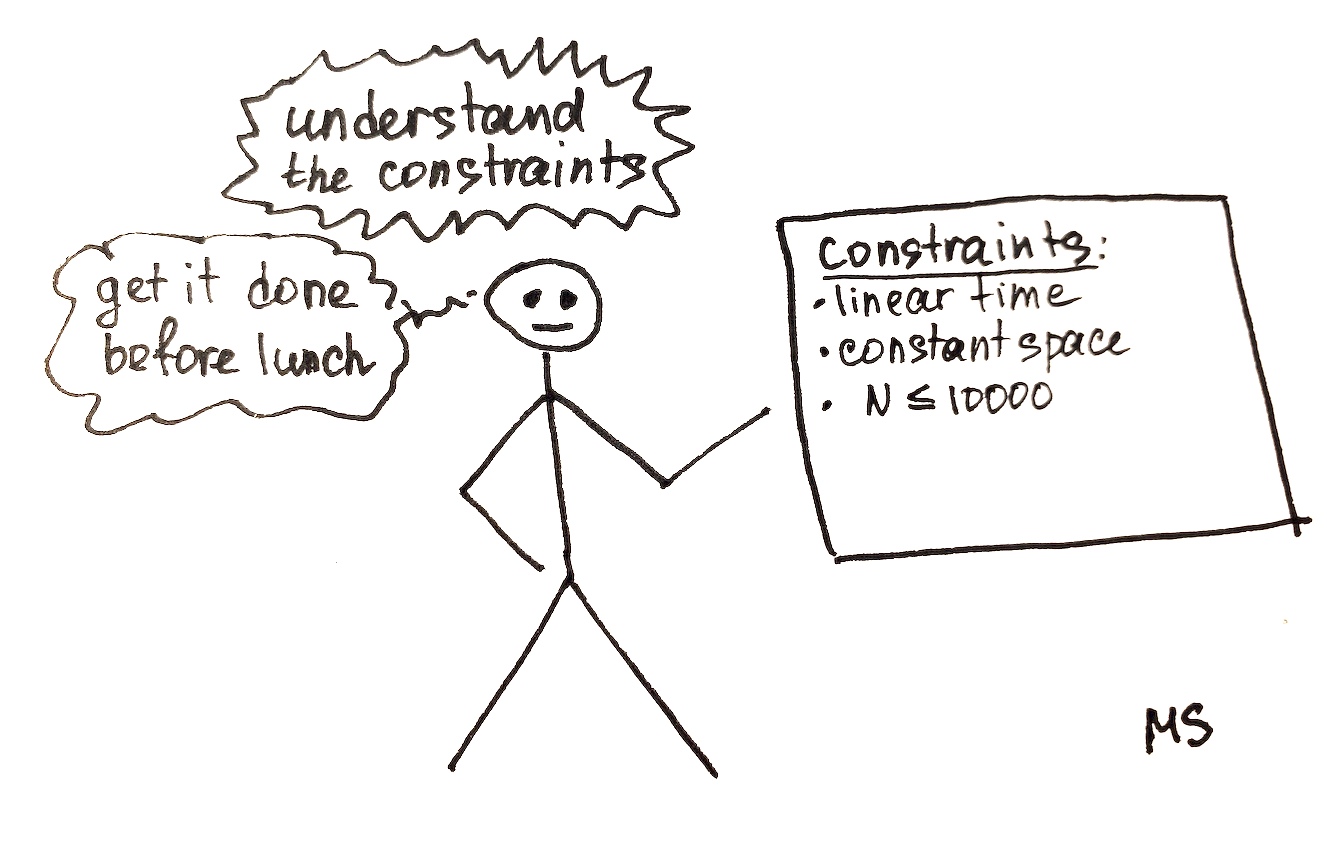 understand
the constraints
get it done
before lunch
constraints:
• linear time
• constant space
• N ≤ 10000
MS